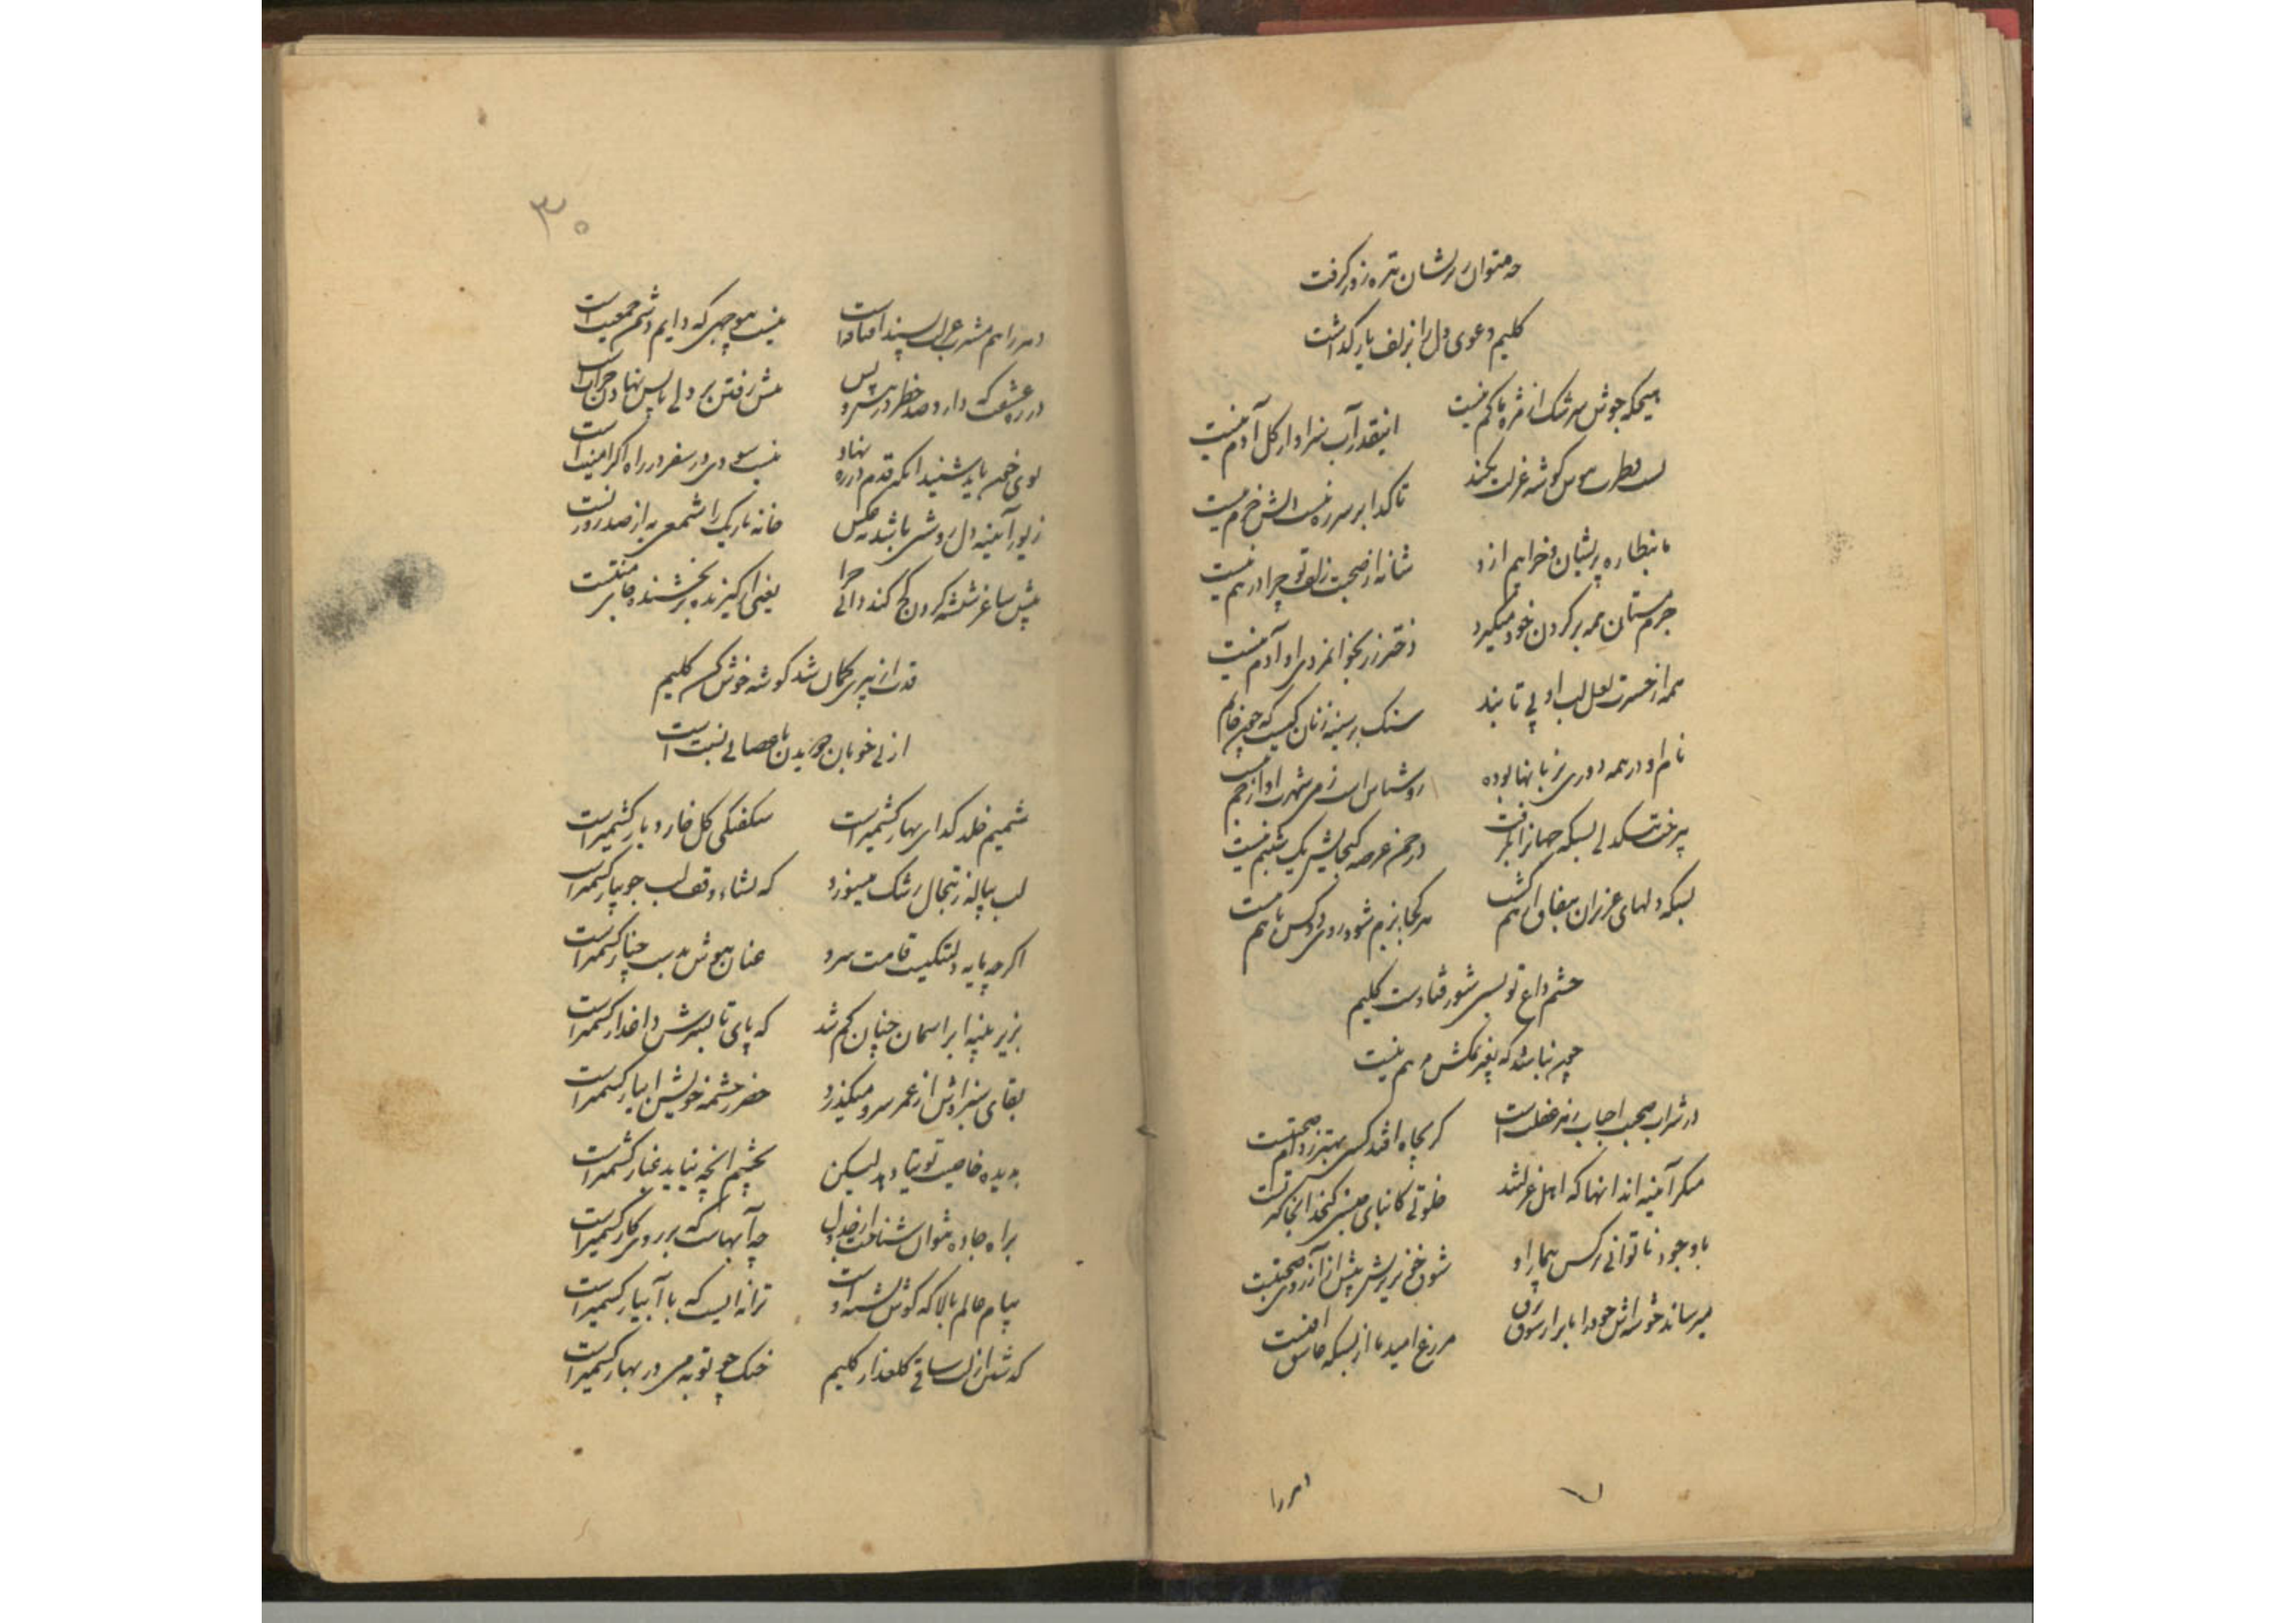 چه میتوان ز پریشان تیره روز گرفت
کلیم دعوی دل را بزلف یار گذاشت
هیچکه جوش سرشک از مژه ما کم نیست
اینقدر آب سزاوار گل آدم نیست
گوشه عزلت نکند
تا گدا بر سر ره نیست دلش خرم نیست
پریشان نخراهیم از او
شانه از صحبت زلف تو چرا درهم نیست
جرم مستان همه بر گردن خود میگیرد
دختر رز بجوانمردی او آدم نیست
همه از حسرت لعل لب او بی تابند
سنک بر سینه زنان کیست که چون خاتم نیست
نام او در همه دوری بزبانها بوده
روشناس است ز می شهرت او از جم نیست
پر شد ز تنکدلی بسکه جهان را بگرفت
در چمن عرصه گنجایش یک شبنم نیست
بسکه دلهای عزیزان بنفاق از هم گشت
هر کجا بزم شود روی دو کس با هم نیست
چشم داغ تو بسی شور فتادست کلیم
چون نباشد که بغیر نمکش مرهم نیست
در شراب صحبت احباب زهر غفلت است
گر بچاه افتد کسی بهتر ز دام صحبتست
مگر آئینه اند آنها که اهل عزلتند
خلوتی کانبای جنس کنجد آنجا کثرتست
با وجود ناتوانی نرکس بیمار او
شوق خونریزیش بیش از آرزوی صحبتست
میرساند خوشه اش خود را بابر از شوق برق
مزرع امید ما از بسکه عاشق آفتست
دهر را
۳۰
دهر را هم مشرب عالم پسند افتاده است
نیست بیوجهی که دایم دشمن جمعیت است
در ره عشقت که دارد صد خطر در هر پس
پیش رفتن بر دلی پا پس نهادن جراتست
بوی خون باید شنید آنکه قدم در ره نهاد
نیست سودی در سفر در راه اگر امنیت است
زیور آئینه دل روشنی باشد نه عکس
خانه تاریک را شمعی به از صد زینت است
پیش ساغر شیشه گردن کج کند دانی چرا
یعنی ار گیرنده بر بخشنده جای منتست
قدت از پیری کمان شد گوشه خوش کن کلیم
از پی خوبان دویدن با عصا بی نسبت است
شمیم خلد گدای بهار کشمیر است
شکفتکی گل خار دیار کشمیر است
لب پیاله ز تبخال رشک میسوزد
که نشاء وقف لب جویبار کشمیر است
اگرچه پایه دلتنگیست قامت سرو
عنان هوش بدست چنار کشمیر است
بزیر پنبه ابر آسمان چنان گم شد
که پای تا بسرش داغدار کشمیر است
بقای سبزه اش از عمر سرو میگذرد
خضر ز چشمه خویش آبیار کشمیر است
بدیده خاصیت توتیا دهد لیکن
بچشم آنچه نیاید غبار کشمیر است
براه جاده نتوان شناخت از جدول
چه آبهاست که بر روی کار کشمیر است
پیام عالم بالا که گوش تشنه اوست
ترانه ایست که با آبشار کشمیر است
گذشتن از لب ساقی گلعذار کلیم
خنک چو توبه می در بهار کشمیر است